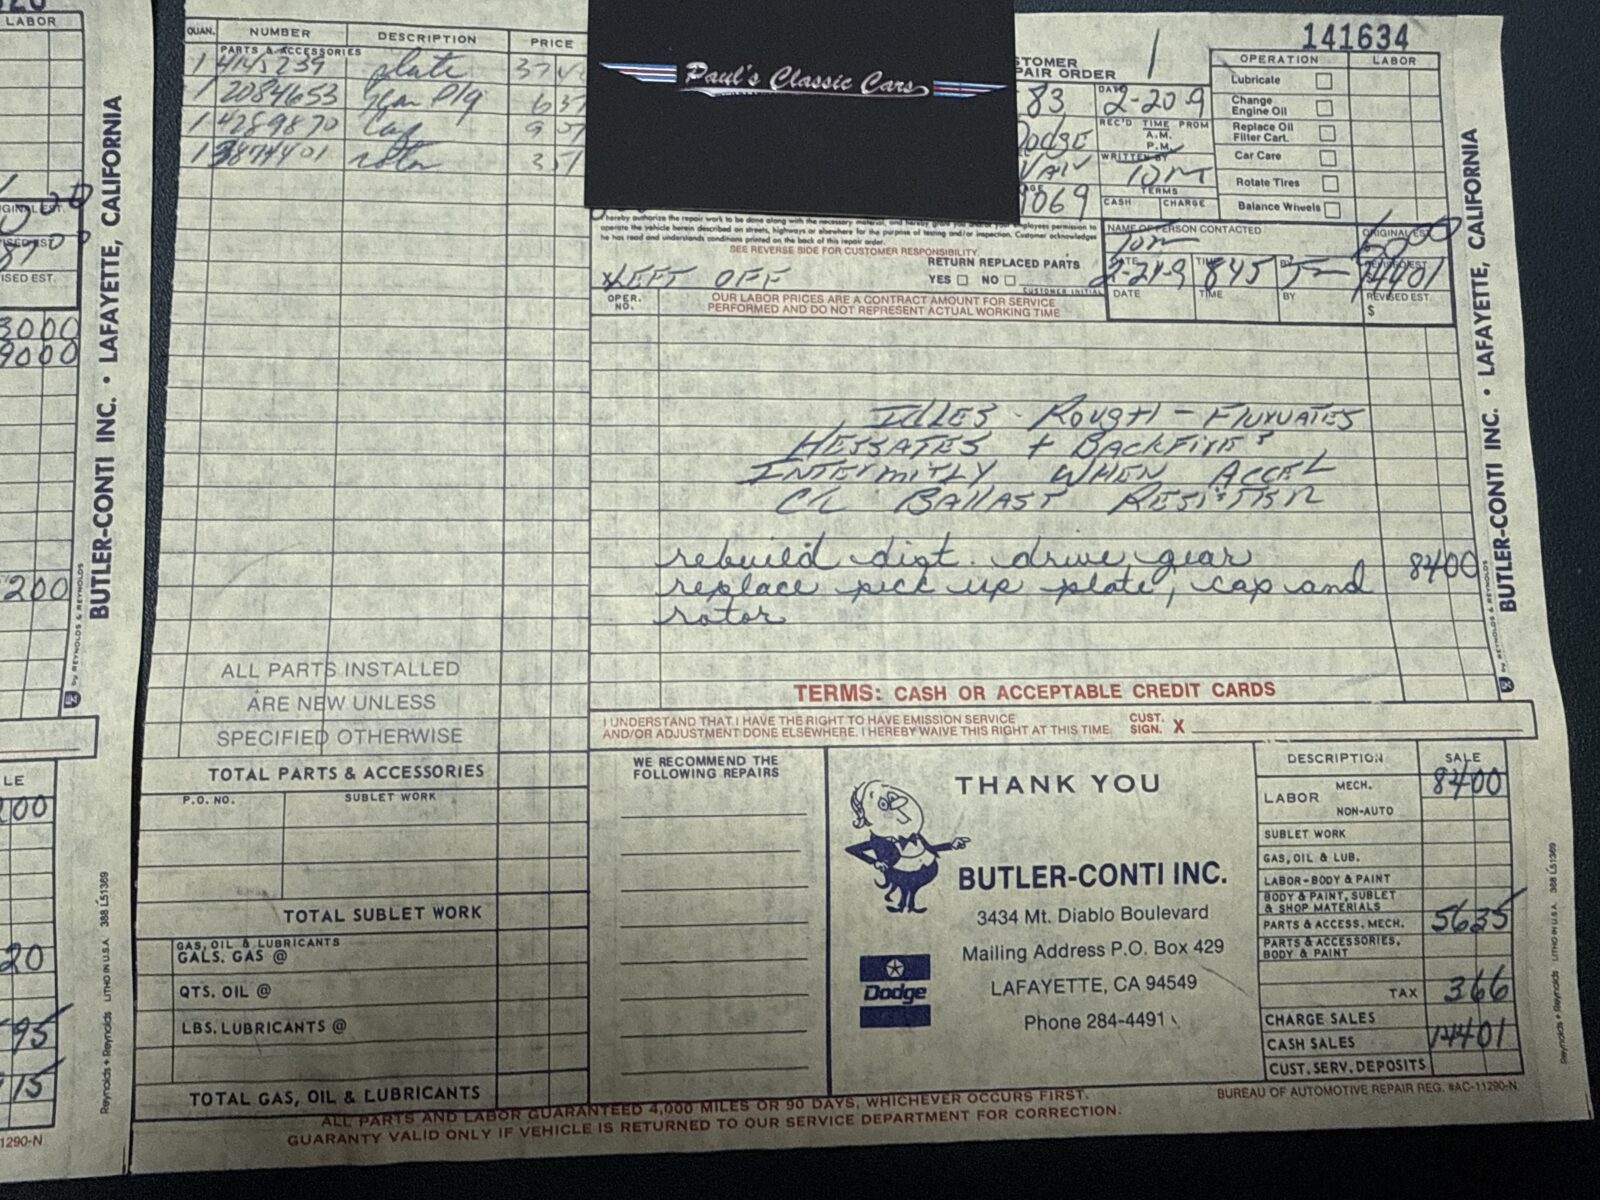 LABOR
BUTLER-CONTI INC. • LAFAYETTE, CALIFORNIA
by REYNOLDS & REYNOLDS
3000
9000
200
LE
00
20
95
15
1290-N
Reynolds + Reynolds LITHO IN U.S.A. 388 L51369
QUAN. NUMBER DESCRIPTION PRICE
PARTS & ACCESSORIES
1 4145239 plate
1 2084653 Gear Pkg
1 4289870 Cap
1 3874401 rotor
Paul's Classic Cars
STOMER
PAIR ORDER
1
141634
83
DATE
2-20-9
Dodge
REC'D TIME PROM
A.M.
P.M.
Van
WRITTEN BY
Tom
9069
TERMS
CASH CHARGE
OPERATION LABOR
Lubricate
Change
Engine Oil
Replace Oil
Filter Cart.
Car Care
Rotate Tires
Balance Wheels
I hereby authorize the repair work to be done along with the necessary material, and hereby grant you and/or your employees permission to
operate the vehicle herein described on streets, highways or elsewhere for the purpose of testing and/or inspection. Customer acknowledges
he has read and understands conditions printed on the back of this repair order.
SEE REVERSE SIDE FOR CUSTOMER RESPONSIBILITY.
RETURN REPLACED PARTS
YES NO
CUSTOMER INITIAL
X LEFT OFF
NAME OF PERSON CONTACTED
Tom
ORIGINAL EST.
DATE TIME BY REVISED EST.
2-21-9 845 14401
DATE TIME BY REVISED EST.
$
OPER.
NO.
OUR LABOR PRICES ARE A CONTRACT AMOUNT FOR SERVICE
PERFORMED AND DO NOT REPRESENT ACTUAL WORKING TIME
IDLES ROUGH - FLUXUATES
HESSATES + BACKFIRES
INTERMITLY WHEN ACCEL
C/L BALLAST RESISTER
rebuild dist. drive gear
replace pick up plate, cap and
rotor
8400
BUTLER-CONTI INC. • LAFAYETTE, CALIFORNIA
by REYNOLDS & REYNOLDS
ALL PARTS INSTALLED
ARE NEW UNLESS
SPECIFIED OTHERWISE
TERMS: CASH OR ACCEPTABLE CREDIT CARDS
I UNDERSTAND THAT I HAVE THE RIGHT TO HAVE EMISSION SERVICE
AND/OR ADJUSTMENT DONE ELSEWHERE. I HEREBY WAIVE THIS RIGHT AT THIS TIME.
CUST.
SIGN. X
TOTAL PARTS & ACCESSORIES
P.O. NO. SUBLET WORK
TOTAL SUBLET WORK
GAS, OIL & LUBRICANTS
GALS. GAS @
QTS. OIL @
LBS. LUBRICANTS @
TOTAL GAS, OIL & LUBRICANTS
WE RECOMMEND THE
FOLLOWING REPAIRS
THANK YOU
BUTLER-CONTI INC.
3434 Mt. Diablo Boulevard
Mailing Address P.O. Box 429
LAFAYETTE, CA 94549
Phone 284-4491
Dodge
DESCRIPTION SALE
LABOR MECH. 8400
NON-AUTO
SUBLET WORK
GAS, OIL & LUB.
LABOR-BODY & PAINT
BODY & PAINT, SUBLET
& SHOP MATERIALS
PARTS & ACCESS. MECH. 5635
PARTS & ACCESSORIES,
BODY & PAINT
TAX 366
CHARGE SALES
CASH SALES 14401
CUST. SERV. DEPOSITS
BUREAU OF AUTOMOTIVE REPAIR REG. #AC-11290-N
Reynolds + Reynolds LITHO IN U.S.A. 388 L51369
ALL PARTS AND LABOR GUARANTEED 4,000 MILES OR 90 DAYS, WHICHEVER OCCURS FIRST.
GUARANTY VALID ONLY IF VEHICLE IS RETURNED TO OUR SERVICE DEPARTMENT FOR CORRECTION.